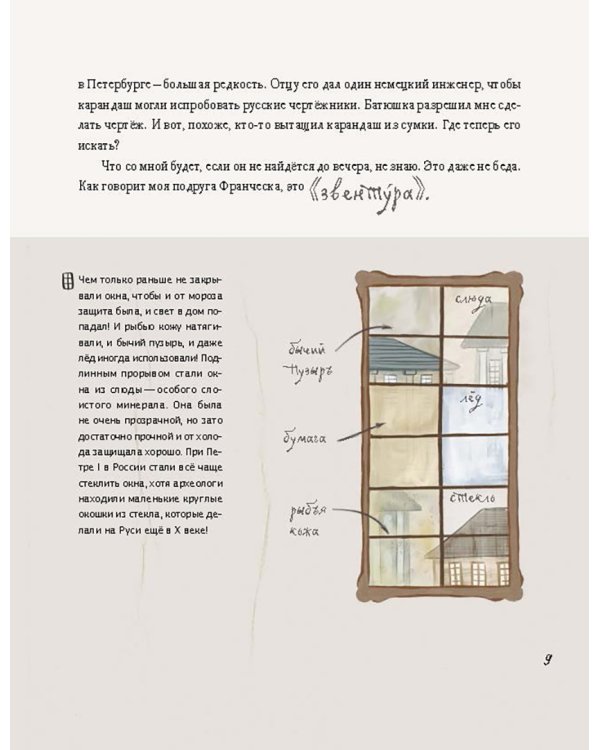 в Петербурге — большая редкость. Отцу его дал один немецкий инженер, чтобы
карандаш могли испробовать русские чертёжники. Батюшка разрешил мне сде-
лать чертёж. И вот, похоже, кто-то вытащил карандаш из сумки. Где теперь его
искать?
Что со мной будет, если он не найдётся до вечера, не знаю. Это даже не беда.
Как говорит моя подруга Франческа, это «звентýра».
Чем только раньше не закры-
вали окна, чтобы и от мороза
защита была, и свет в дом по-
падал! И рыбью кожу натяги-
вали, и бычий пузырь, и даже
лёд иногда использовали! Под-
линным прорывом стали ок-
на из слюды — особого сло-
истого минерала. Она была
не очень прозрачной, но зато
достаточно прочной и от холо-
да защищала хорошо. При Пе-
тре I в России стали всё чаще
стеклить окна, хотя археологи
находили маленькие круглые
окошки из стекла, которые де-
лали на Руси ещё в X веке!
слюда
бычий
пузырь
лёд
бумага
стекль
рыбья
кожа
9